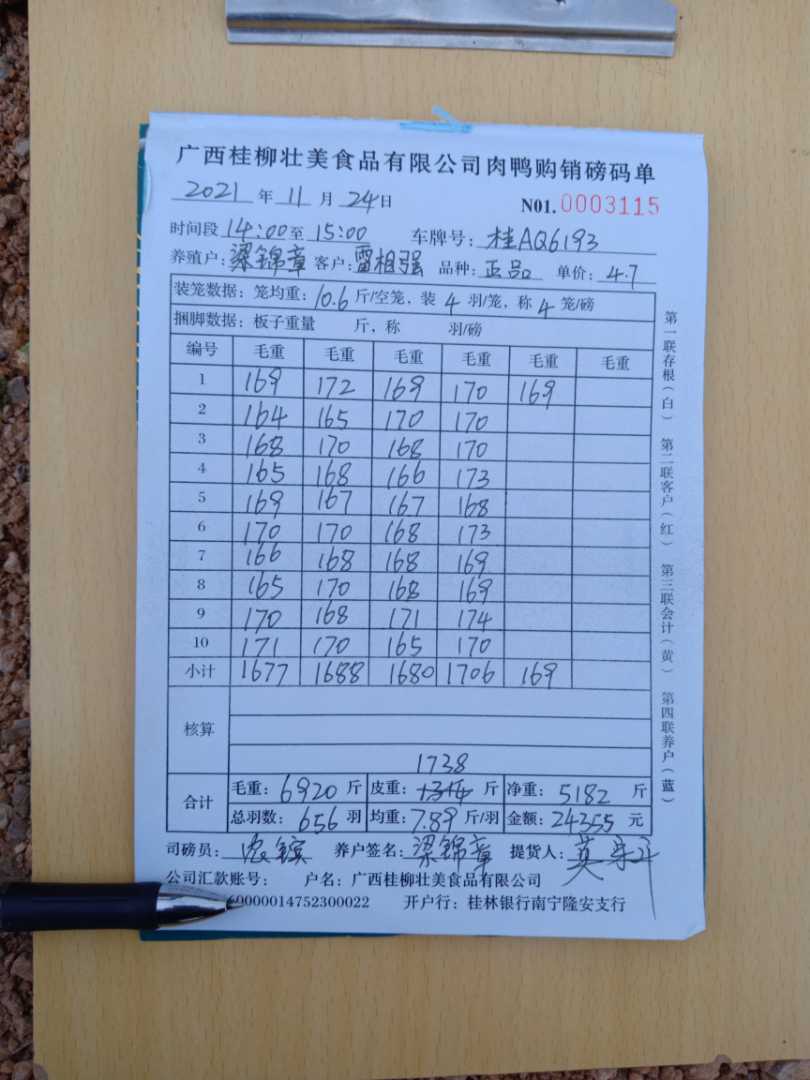 广西桂柳壮美食品有限公司肉鸭购销磅码单
2021 年 11 月 24日 N01. 0003115
时间段 14:00至 15:00 车牌号: 桂AQ6193
养殖户: 梁锦章 客户: 雷相强 品种: 正品 单价: 4.7
装笼数据: 笼均重: 10.6 斤/空笼, 装 4 羽/笼, 称 4 笼/磅
捆脚数据: 板子重量 斤, 称 羽/磅
编号 毛重 毛重 毛重 毛重 毛重 毛重
1 169 172 169 170 169
2 164 165 170 170
3 168 170 168 170
4 165 168 166 173
5 169 167 167 168
6 170 170 168 173
7 166 168 168 169
8 165 170 168 169
9 170 168 171 174
10 171 170 165 170
小计 1677 1688 1680 1706 169
核算
1738
合计 毛重: 6920 斤 皮重: 斤 净重: 5182 斤
总羽数: 656 羽 均重: 7.89 斤/羽 金额: 24355 元
司磅员: 养户签名: 梁锦章 提货人:
公司汇款账号: 户名: 广西桂柳壮美食品有限公司
0000014752300022 开户行: 桂林银行南宁隆安支行
第一联存根(白) 第二联客户(红) 第三联会计(黄) 第四联养户(蓝)